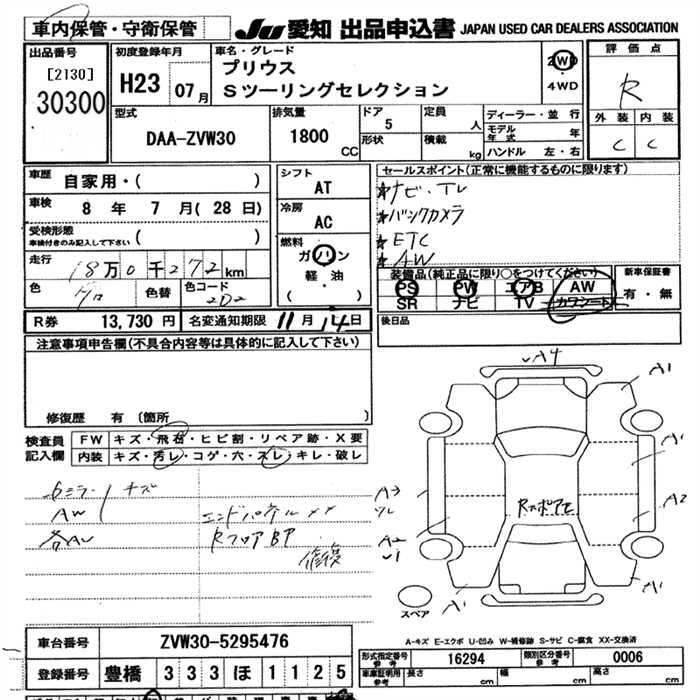 車内保管・守衛保管
JU 愛知 出品申込書 JAPAN USED CAR DEALERS ASSOCIATION
出品番号
[2130]
30300
初度登録年月
H23 07月
車名・グレード
プリウス
Sツーリングセレクション
2WD
4WD
評価点
R
外装 内装
C C
型式
DAA-ZVW30
排気量
1800 CC
ドア
5
形状
定員
人
積載
kg
ディーラー・並行
モデル年式 年
ハンドル 左・右
車歴 自家用・( )
車検 8年 7月(28日)
受検形態
車検付きのみ記入して下さい ( )
走行 18万0千272km
色 色替 色コード
2D2
シフト
AT
冷房
AC
燃料
ガソリン
軽油
( )
セールスポイント(正常に機能するものに限ります)
★ナビ・TV
★バックカメラ
★ETC
★AW
装備品(純正品に限り○をつけてください)
PS PW エアB AW
SR ナビ TV カワシート
新車保証書
有・無
R券 13,730円 名変通知期限 11月14日
後日品
注意事項申告欄(不具合内容等は具体的に記入して下さい)
修復歴 有 〔箇所 〕
検査員記入欄
FW キズ・飛石・ヒビ割・リペア跡・X要
内装 キズ・汚レ・コゲ・穴・スレ・キレ・破レ
ミラーキズ
AW
エンドパネルXX
RフロアBP
修復
A4
A1
A1
A3
A2
A2
A1
A1
RフロアP
スペア
A-キズ E-エクボ U-凹み W-補修跡 S-サビ C-腐食 XX-交換済
車台番号 ZVW30-5295476
登録番号 豊橋 333 ほ 1125
型式指定番号 参考 16294
類別区分番号 参考 0006
車庫証明用 参考 長さ cm 幅 cm 高さ cm